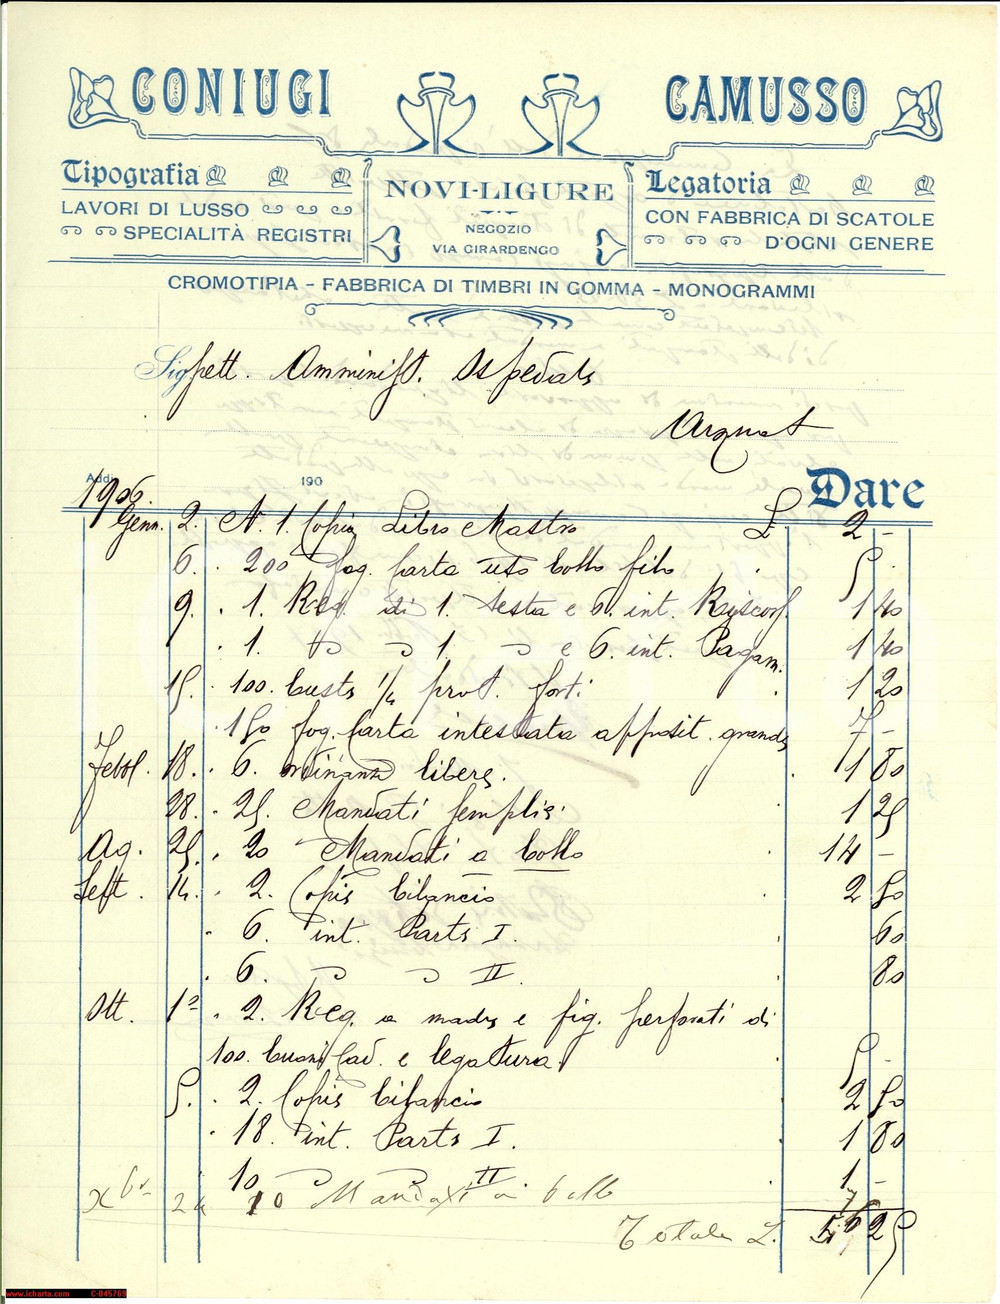 CONIUGI CAMUSSO
Tipografia
LAVORI DI LUSSO
SPECIALITÀ REGISTRI
NOVI-LIGURE
NEGOZIO
VIA GIRARDENGO
Legatoria
CON FABBRICA DI SCATOLE
D'OGNI GENERE
CROMOTIPIA - FABBRICA DI TIMBRI IN GOMMA - MONOGRAMMI
Sig pett. Amminist. Ospedale
Arquat
Addì 1906. 190 Dare
Genn. 2. N. 1. Copia Libro Mastro L 2 -
6. 200 fog. Carta uso bollo filo 5
9. 1. Reg. di 1. testa e 6. int. Riscoss. 1 40
1. " " 1. " e 6. int. Pagam. 1 40
15. 100. buste 1/4 prot. forti 1 20
150 fog. Carta intestata apposit. grande 7 -
Febb. 18. 6. ordinanze libere. 1 80
28. 25. Mandati semplici 1 25
Ag. 25. 20 Mandati a bollo 14 -
Sett. 14. 2. Copie bilancio 2 50
6. int. Parte I. 60
6. " " II. 80
Ott. 1° 2. Reg. a madre e fig. perforati di
100. buoni Cad. e legatura. 5 -
5. 2. Copie bilancio 2 50
18. int. Parte I. 1 80
10 " " II 1 -
Xbre 24 10 Mandati a bollo 7
Totale L. 56 25
www.icharta.com C-045769